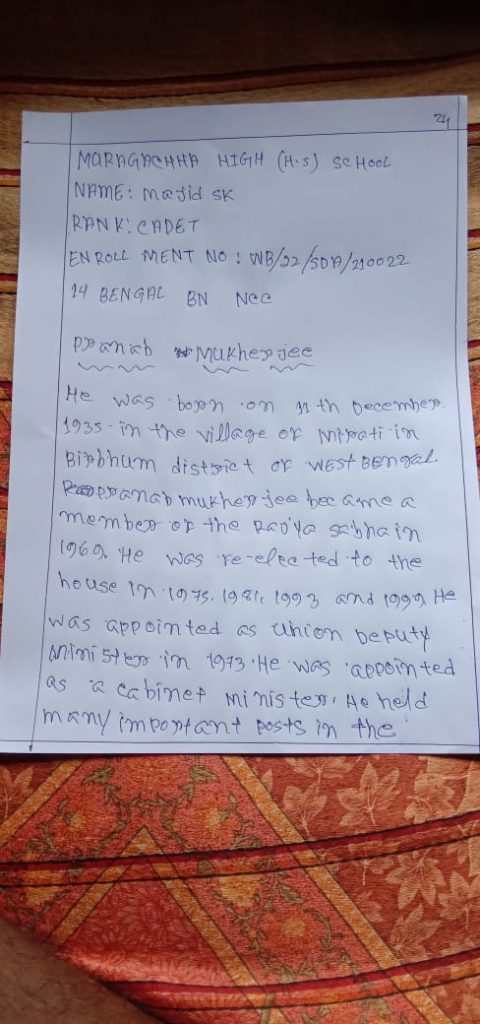 24
MURAGACHHA HIGH (H.S) SCHOOL
NAME: Majid SK
RANK: CADET
ENROLL MENT NO : WB/22/SDA/210022
14 BENGAL BN NCC
Pranab Mukherjee
He was born on 11 th December
1935 in the village of Mirati in
Birbhum district of WEST BENGAL.
Pranab mukherjee became a
member of the Rajya sabha in
1969. He was re-elected to the
house in 1975, 1981, 1993 and 1999. He
was appointed as union Deputy
Minister in 1973. He was appointed
as a cabinet minister. He held
many important posts in the